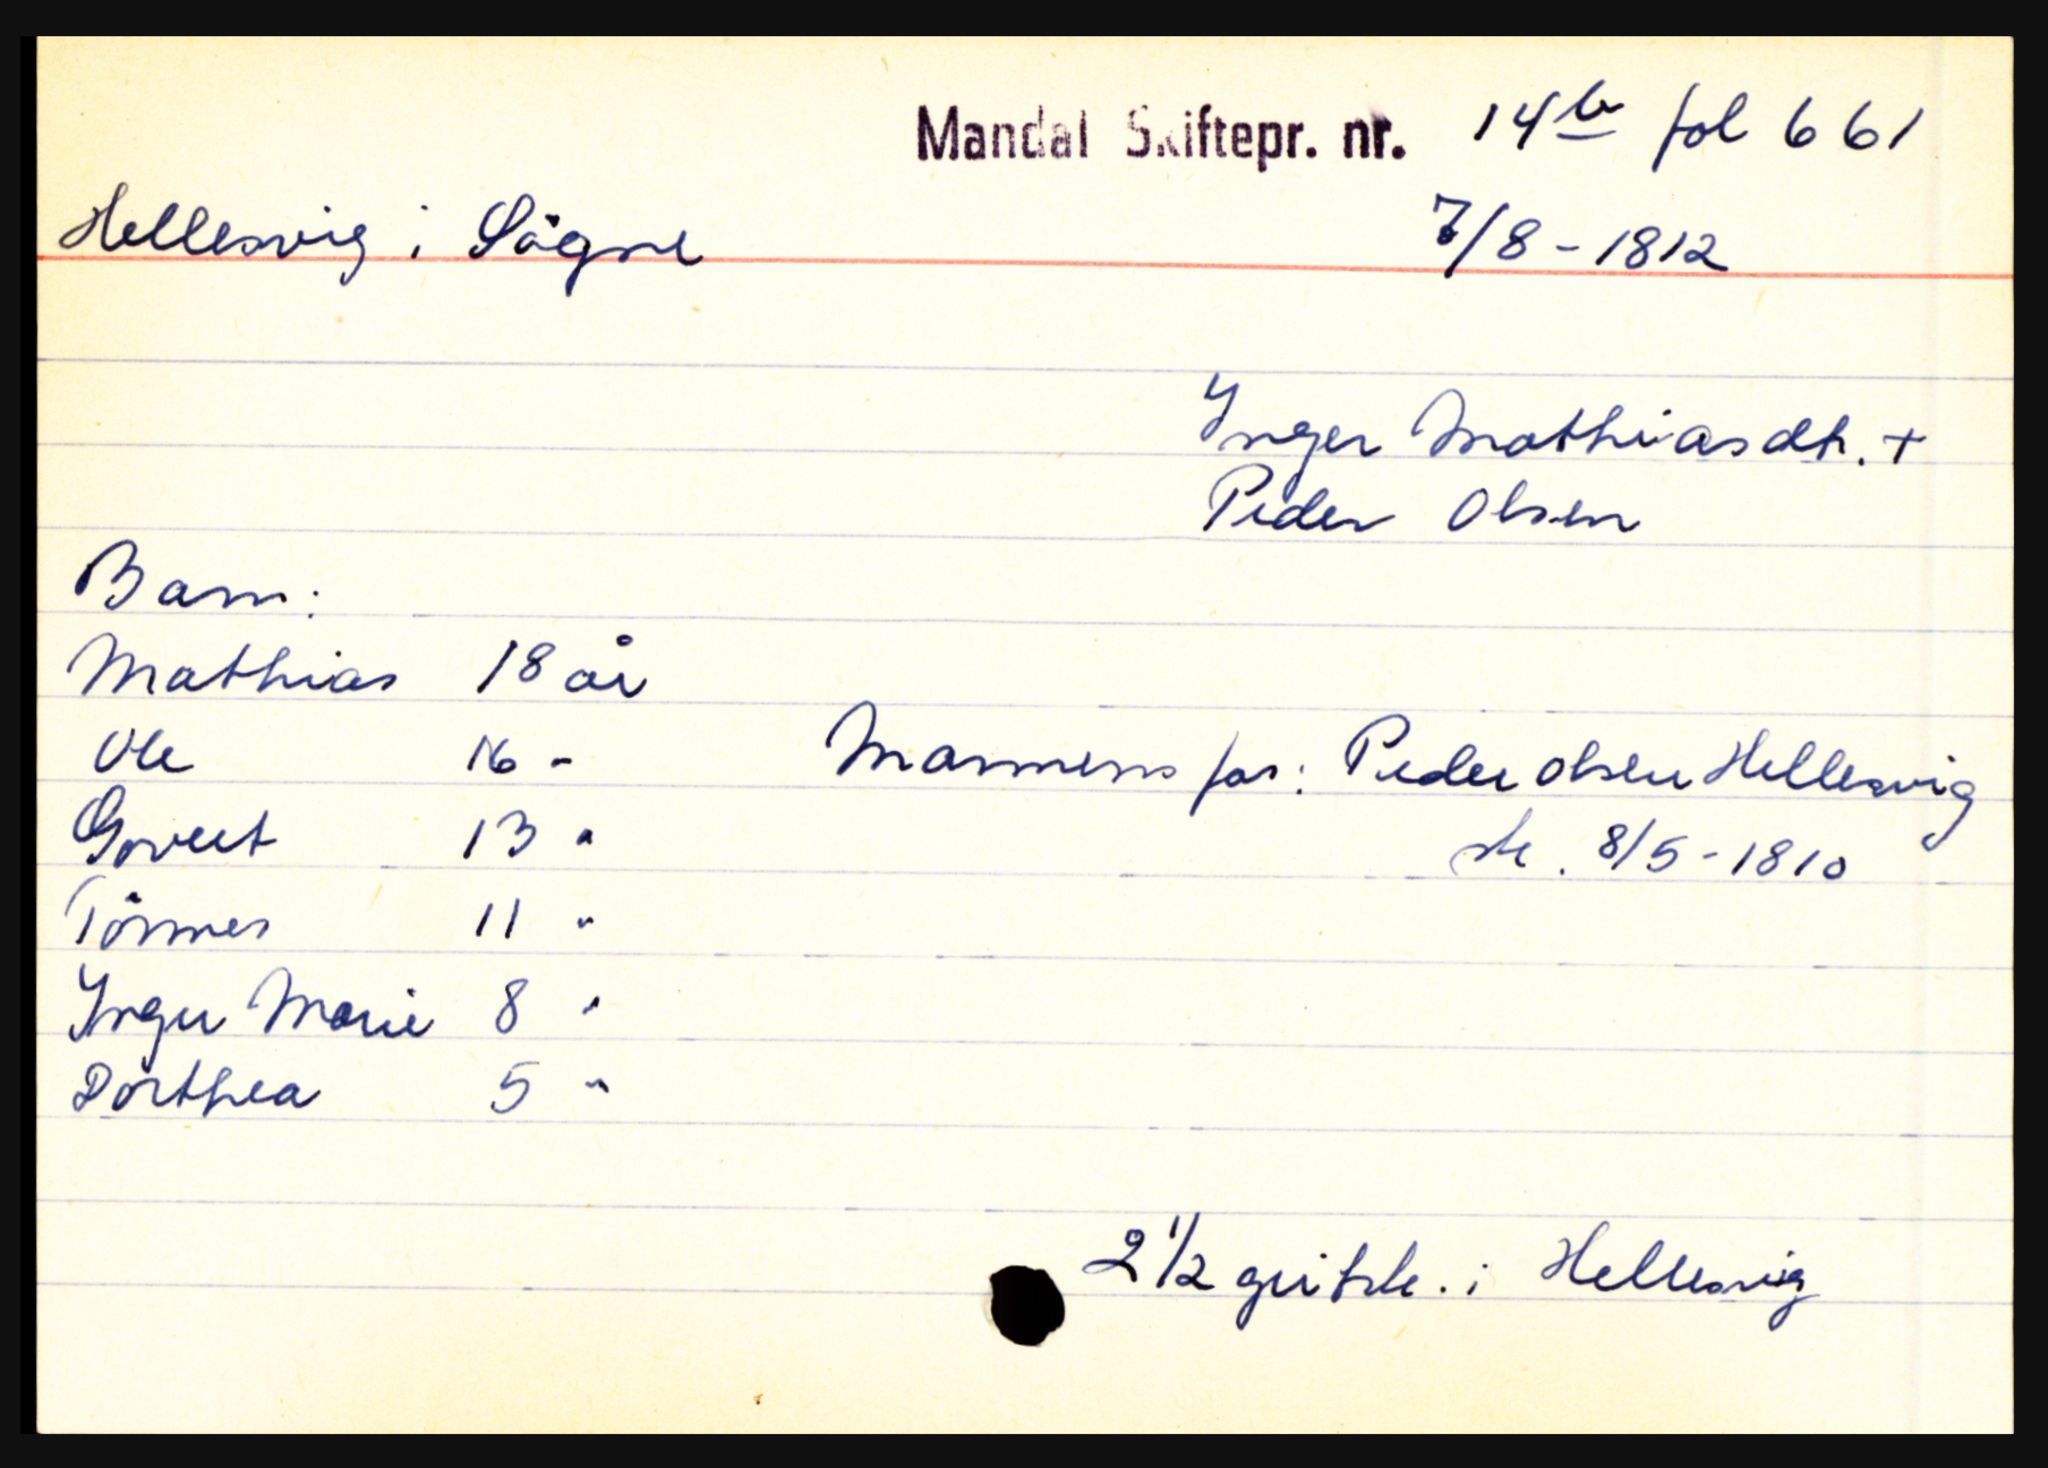 Mandal Skiftepr. nr. 14b fol 661
Hellesvig i Søgne 7/8 - 1812
Inger Mathiasdtr. +
Peder Olsen
Barn:
Mathias 18 år
Ole 16 -
Govert 13 "
Tønnes 11 "
Inger Marie 8 "
Dorthea 5 "
Mannens far: Peder Olsen Hellesvig
sk. 8/5 - 1810
2 1/2 gritsk. i Hellesvig